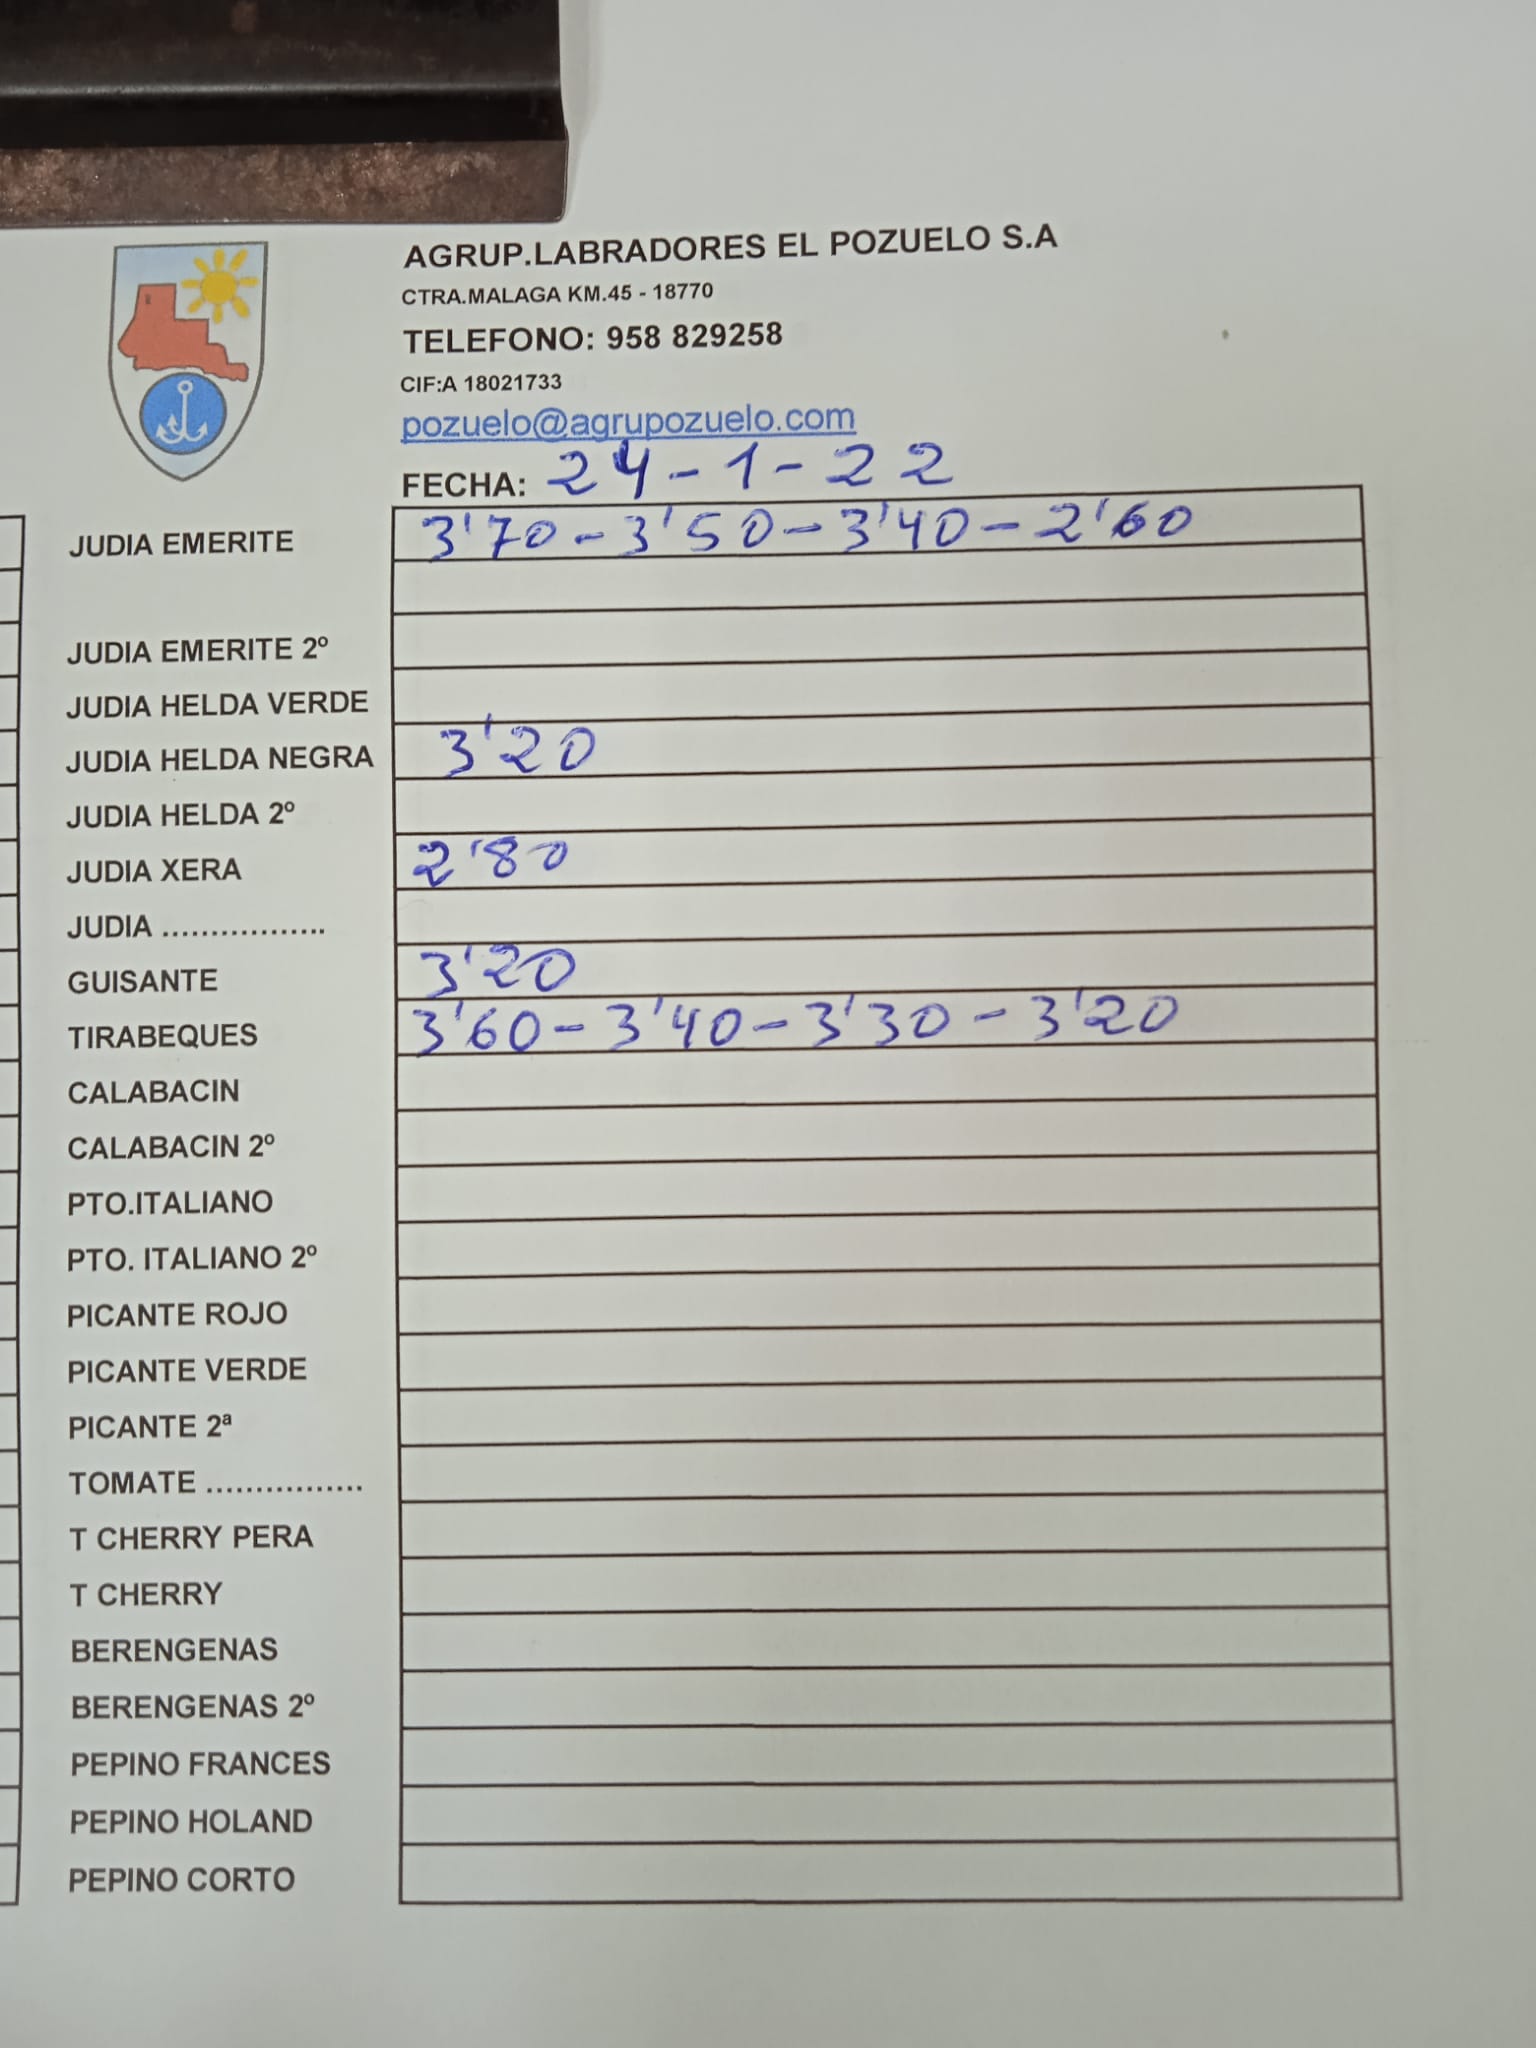 AGRUP.LABRADORES EL POZUELO S.A
CTRA.MALAGA KM.45 - 18770
TELEFONO: 958 829258
CIF:A 18021733
pozuelo@agrupozuelo.com
FECHA: 24-1-22
JUDIA EMERITE 3'70 - 3'50 - 3'40 - 2'60
JUDIA EMERITE 2º
JUDIA HELDA VERDE
JUDIA HELDA NEGRA 3'20
JUDIA HELDA 2º
JUDIA XERA 2'80
JUDIA .................
GUISANTE 3'20
TIRABEQUES 3'60 - 3'40 - 3'30 - 3'20
CALABACIN
CALABACIN 2º
PTO.ITALIANO
PTO. ITALIANO 2º
PICANTE ROJO
PICANTE VERDE
PICANTE 2ª
TOMATE ................
T CHERRY PERA
T CHERRY
BERENGENAS
BERENGENAS 2º
PEPINO FRANCES
PEPINO HOLAND
PEPINO CORTO